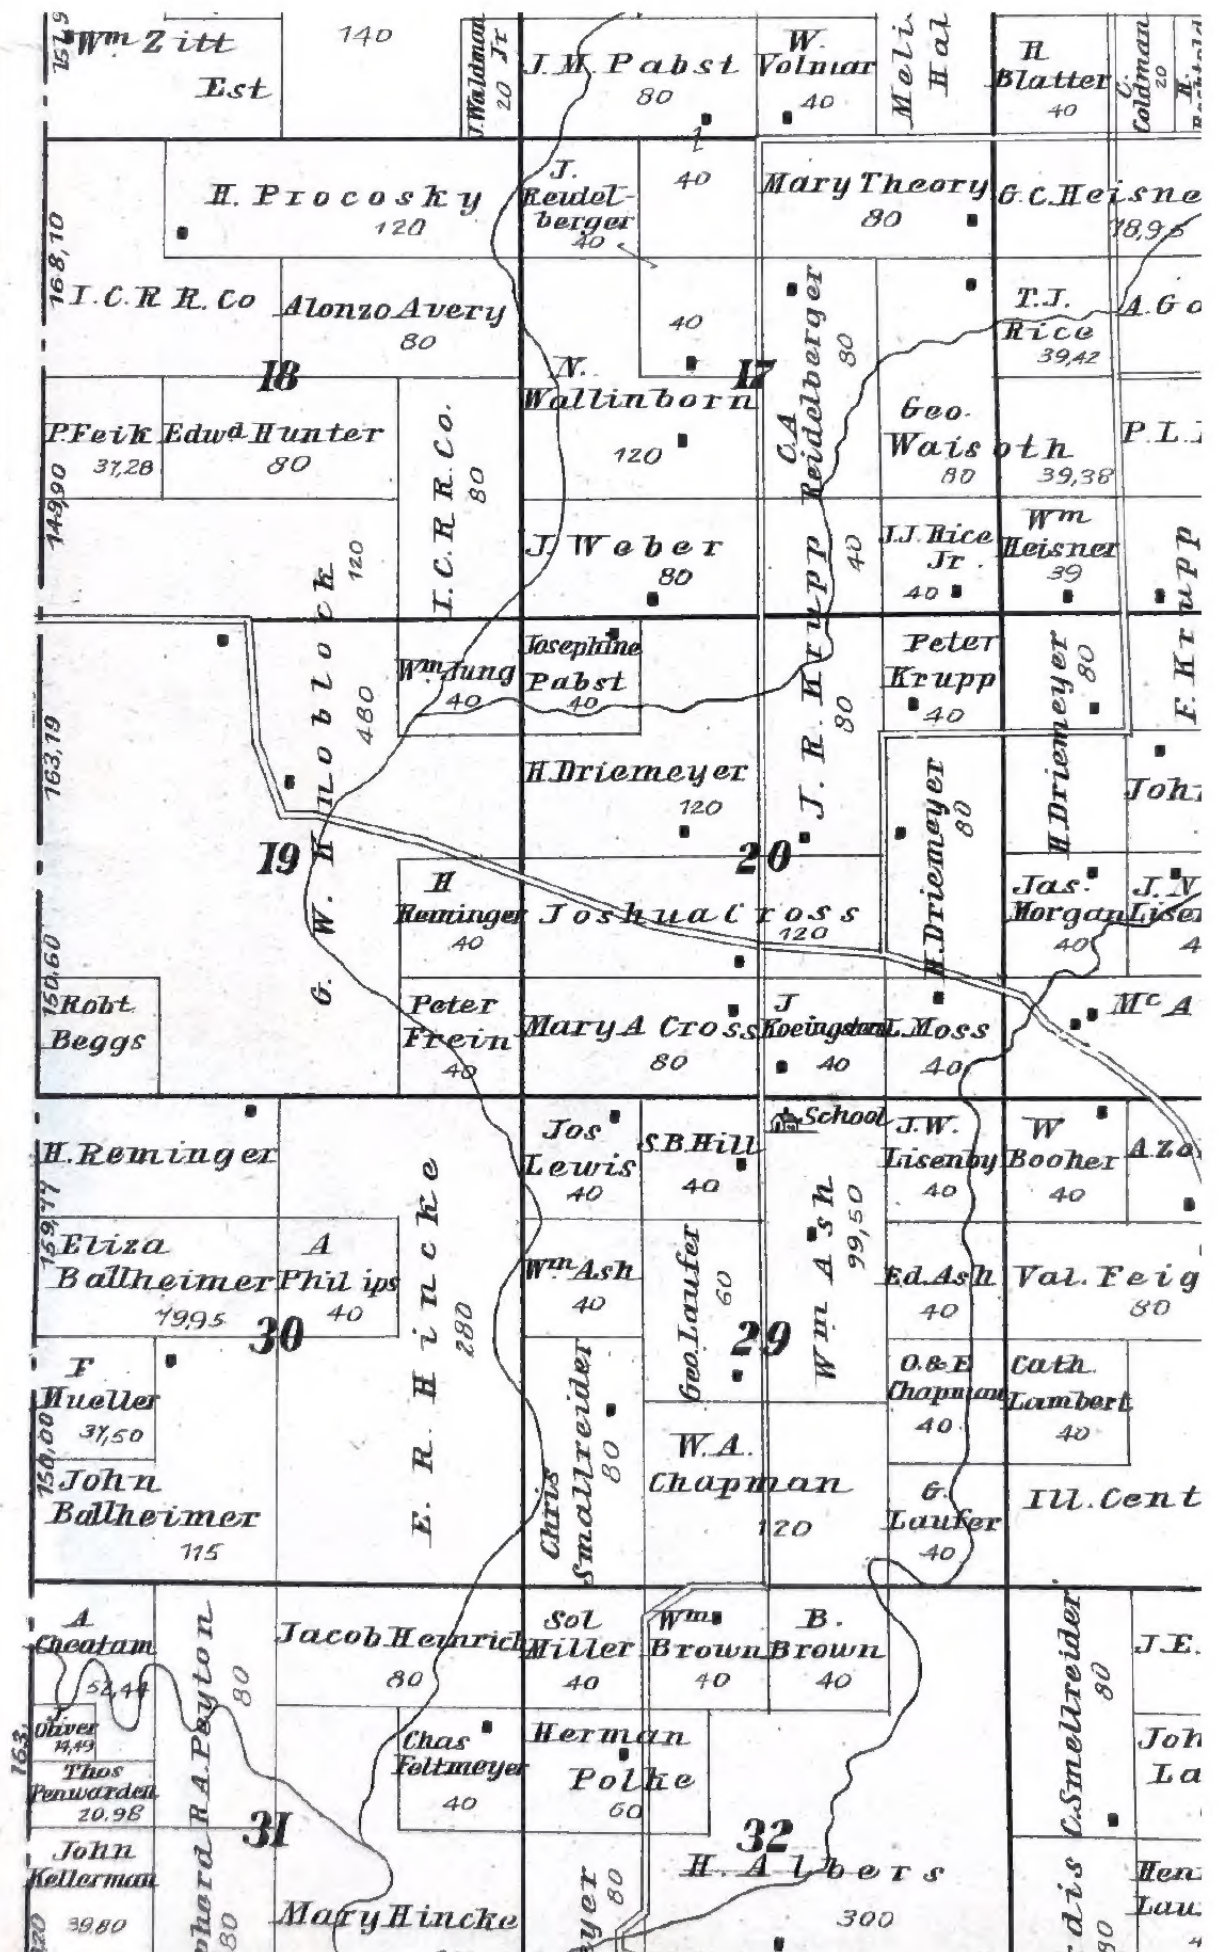 Wm Zitt
Est
140
J. Waldman Jr
20
J. M. Pabst
80
W.
Volmar
40
Meli
Hal
H
Blatter
40
C.
Coldman
20
H.
168,10
H. Procosky
120
J.
Reidel-
berger
40
40
Mary Theory
80
G.C. Heisne
I.C.R R. Co
Alonzo Avery
80
18
40
N.
Wallinborn
120
17
C.A Reidelberger
80
T.J.
Rice
39,42
A. Go
P. Feik
37,28
Edwd Hunter
80
I.C.R R. Co.
80
Geo.
Waisoth
80
39,38
P. L.
149,90
J. Weber
80
J.J. Rice
Jr.
40
Wm
Heisner
39
F. Krupp
G. W. Knoblock
120
480
Wm Jung
40
Josephine
Pabst
40
J. R. Krupp
40
80
Peter
Krupp
40
H. Driemeyer
80
163,19
H. Driemeyer
120
H. Driemeyer
80
Joh
19
20
H
Reminger
40
Joshua Cross
120
Jas.
Morgan
40
J. N
Lisen
4
150,60
Robt
Beggs
Peter
Frein
40
Mary A Cross
80
J
Koeingstein
40
L. Moss
40
Mc A
H. Reminger
Jos
Lewis
40
S.B. Hill
40
School
J. W.
Lisenby
40
W
Booher
40
A. Zo
159,77
Eliza
Ballheimer
79,95
A
Philips
40
E. R. Hincke
280
Wm Ash
40
Geo. Laufer
60
Wm Ash
99,50
Ed. Ash
40
Val. Feig
80
30
29
F
Mueller
37,50
Chris
Smallreider
80
O. & E
Chapman
40
Cath.
Lambert
40
150,00
John
Ballheimer
115
W. A.
Chapman
120
G.
Laufer
40
Ill. Cent
A
Cheatam
52,44
R A. Peyton
80
Jacob Heinrich
80
Sol
Miller
40
Wm
Brown
40
B.
Brown
40
C. Smellreider
80
J. E.
163,
Oliver
14,49
Chas
Feltmeyer
40
Herman
Polke
60
Joh
La
Thos
Penwarden
20.98
31
32
John
Kellerman
39.80
pherd
80
Mary Hincke
eyer
80
H. Albers
300
dis
Hen
Lau